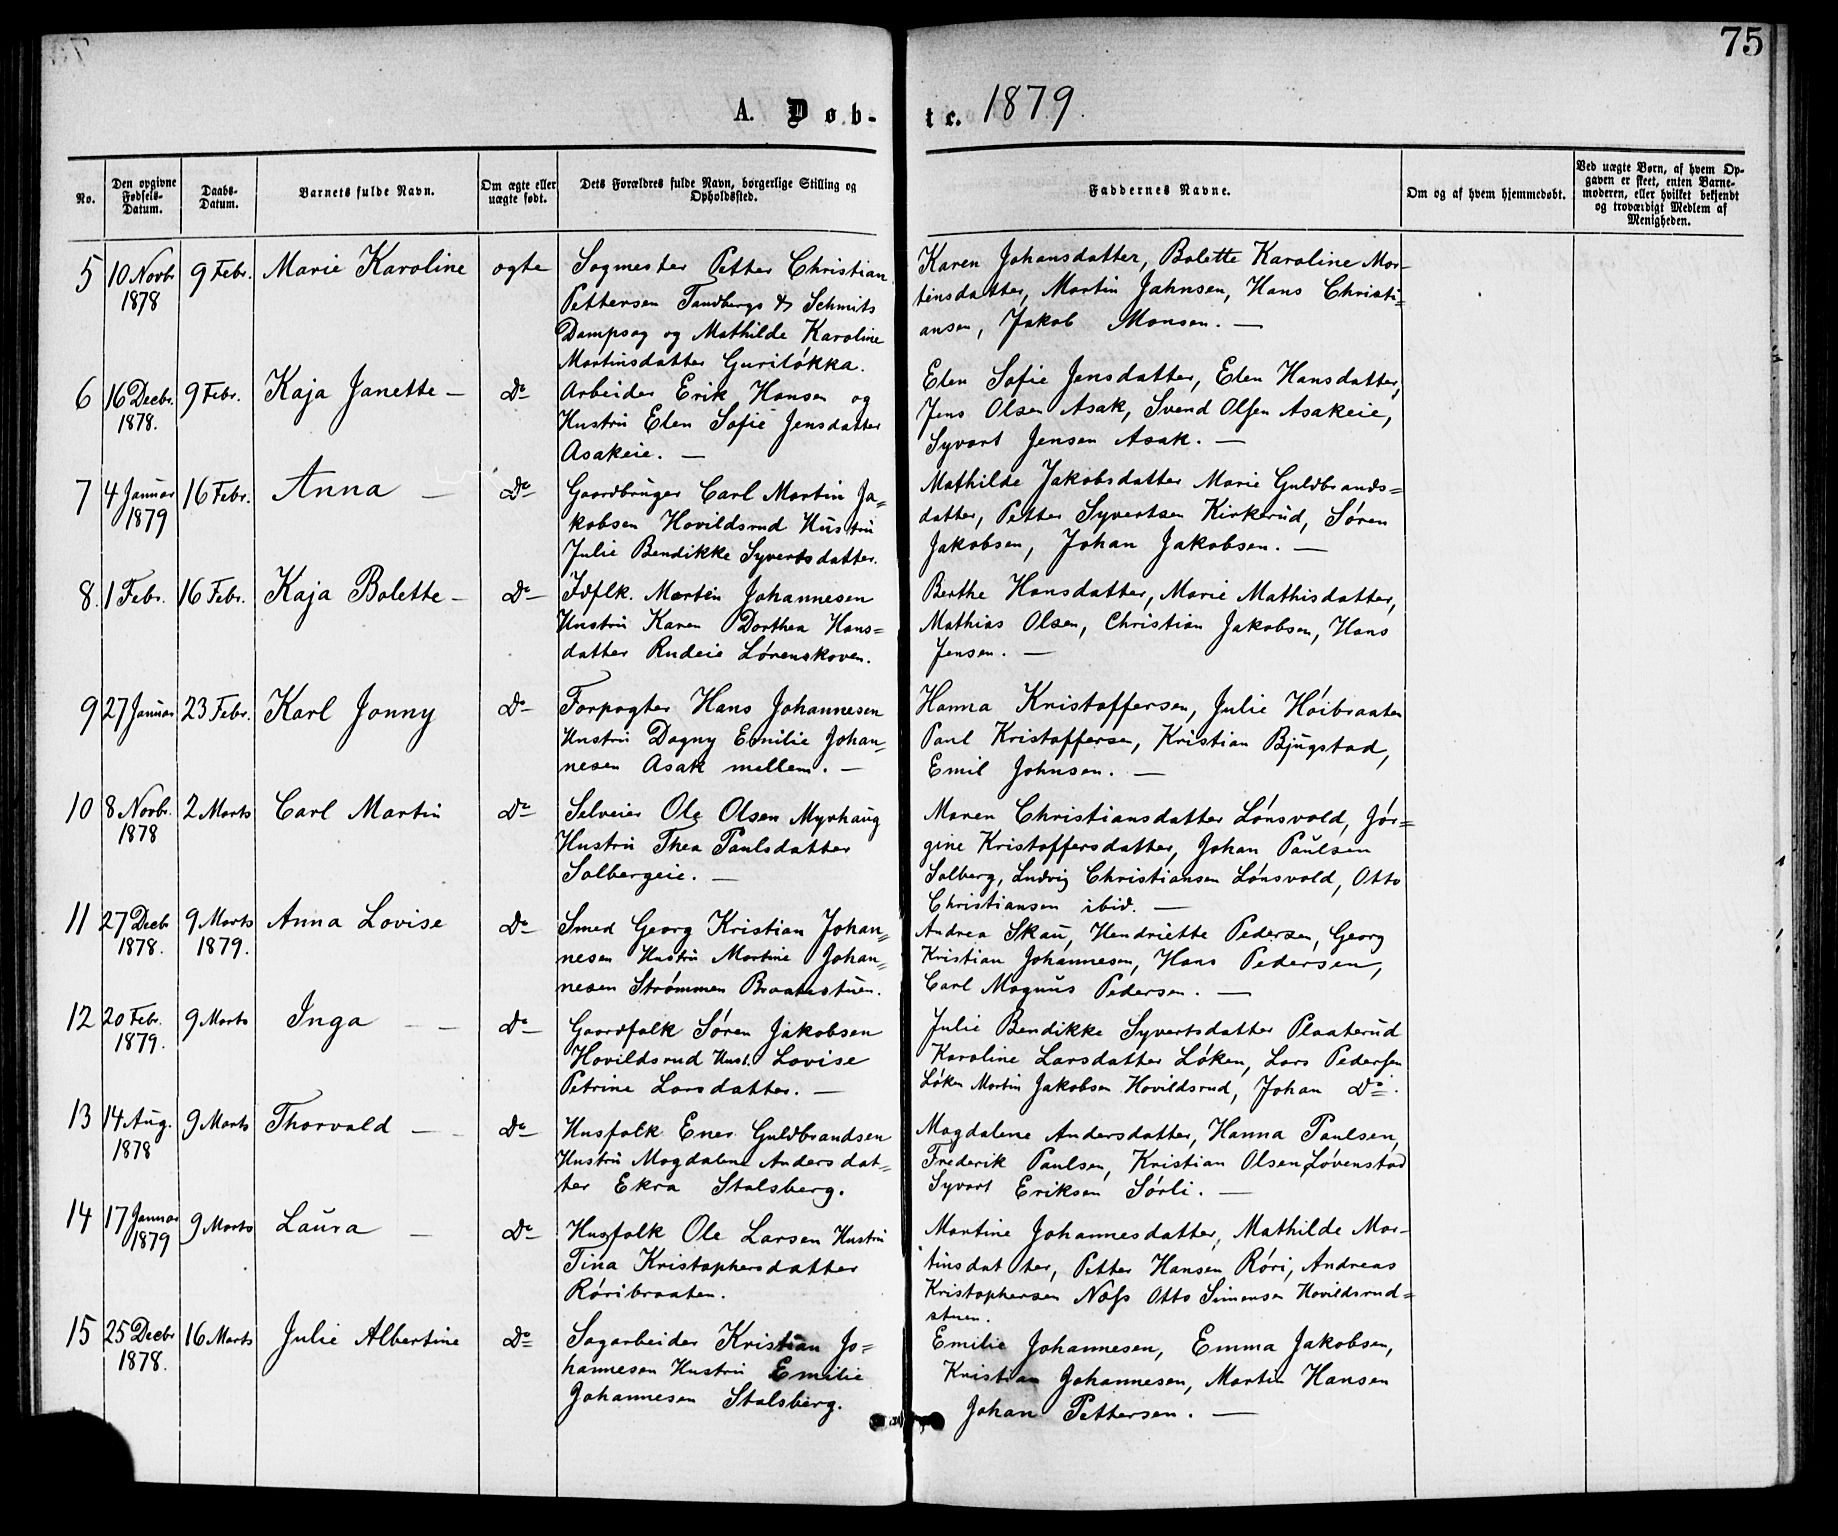 75
A. Døb-
te. 1879.
No.
Den opgivne Fødsels-Datum.
Daabs-Datum.
Barnets fulde Navn.
Om ægte eller uægte født.
Dets Forældres fulde Navn, borgerlige Stilling og Opholdssted.
Faddernes Navne.
Om og af hvem hjemmedøbt.
Ved uægte Børn, af hvem Opgaven er skeet, enten Barnemoderen, eller hvilket bekjendt og troværdigt Medlem af Menigheden.
5 10 Novbr 1878 9 Febr. Marie Karoline ægte
Sagmester Petter Christian
Pettersen Tandbergs & Schmits
Dampsag og Mathilde Karoline
Martinsdatter Guriløkka.
Karen Johansdatter, Bolette Karoline Mar-
tinsdatter, Martin Jahnsen, Hans Christi=
ansen, Jakob Monsen. —
6 16 Decbr. 1878. 9 Febr. Kaja Janette — Do
Arbeider Erik Hansen og
Hustru Elen Sofie Jensdatter
Asakeie. —
Elen Sofie Jensdatter, Elen Hansdatter,
Jens Olsen Asak, Svend Olsen Asakeie,
Syvart Jensen Asak. —
7 4 Januar 1879 16 Febr. Anna — Do
Gaardbruger Carl Martin Ja=
kobsen Hovildsrud Hustru
Julie Bendikke Syvertsdatter.
Mathilde Jakobsdatter Marie Guldbrands=
datter, Petter Syvertsen Kirkerud, Søren
Jakobsen, Johan Jakobsen. —
8. 1 Febr. 16 Febr. Kaja Bolette — Do
Idflk. Martin Johannesen
Hustru Karen Dorthea Hans=
datter Rudeie Lørenskoven.
Berthe Hansdatter, Marie Mathisdatter,
Mathias Olsen, Christian Jakobsen, Hans
Jensen. —
9 27 Januar 23 Febr. Karl Jonny Do
Forpagter Hans Johannesen
Hustru Dagny Emilie Johan=
nesen Asak mellem. —
Hanna Kristoffersen, Julie Høibraaten
Paul Kristoffersen, Kristian Bjugstad,
Emil Johnsen. —
10 8 Novbr. 1878 2 Marts Carl Martin Do
Selveier Ole Olsen Myrhaug
Hustru Thea Paulsdatter
Solbergeie. —
Maren Christiansdatter Lønsvold, Jør=
gine Kristoffersdatter, Johan Paulsen
Solberg, Ludvig Christiansen Lønsvold, Otto
Christiansen ibid. —
11 27 Decbr 1878. 9 Marts 1879. Anna Lovise Do
Smed Georg Kristian Johan=
nesen Hustru Martine Johan=
nesen Strømmen Braatestuen.
Andrea Skau, Hendriette Pedersen, Georg
Kristian Johannesen, Hans Pedersen,
Carl Magnus Pedersen. —
12 20 Febr. 1879. 9 Marts Inga — Do
Gaardfolk Søren Jakobsen
Hovildsrud Hust. Lovise
Petrine Larsdatter. —
Julie Bendikke Syvertsdatter Plaaterud
Karoline Larsdatter Løken, Lars Pedersen
Løken Martin Jakobsen Hovildsrud, Johan Do.
13 14 Aug. 1878 9 Marts Thorvald — Do
Husfolk Ener Guldbrandsen
Hustru Magdalene Andersdat=
ter Ekra Stalsberg.
Magdalene Andersdatter, Hanna Paulsen,
Frederik Paulsen, Kristian Olsen Løvenstad
Syvart Eriksen Sørli. —
14 17 Januar 1879 9 Marts Laura — Do
Husfolk Ole Larsen Hustru
Tina Kristophersdatter
Røribraaten.
Martine Johannesdatter, Mathilde Mar-
tinsdatter, Petter Hansen Røri, Andreas
Kristophersen Næss Otto Simensen Hovildsrud=
stuen.
15 25 Decbr 1878. 16 Marts Julie Albertine Do
Sagarbeider Kristian Jo=
hannesen Hustru Emilie
Johannesen Stalsberg.
Emilie Johannesen, Emma Jakobsen,
Kristian Johannesen, Martin Hansen
Johan Pettersen. —